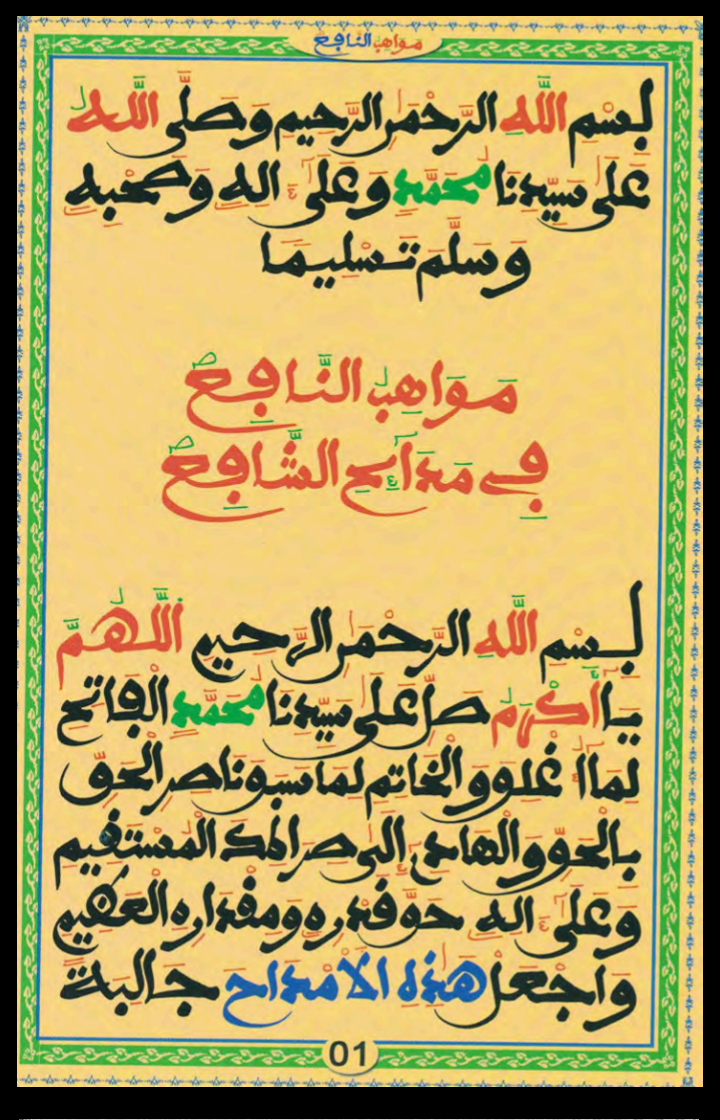 مواهب النافع
بسم الله الرحمن الرحيم وصلى الله
على سيدنا محمد وعلى ءاله وصحبه
وسلم تسليما
مواهب النافع
في مدائح الشافع
بسم الله الرحمن الرحيم اللهم
ياأكرم صل على سيدنا محمد الفاتح
لما أغلق والخاتم لما سبق ناصر الحق
بالحق والهادي إلى صراطك المستقيم
وعلى ءاله حق قدره ومقداره العظيم
واجعل هذه الأمداح جالبة
01